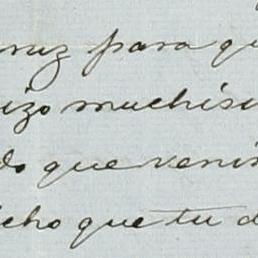 ruz para qu
izo muchísi
do que veni
icho que tu d